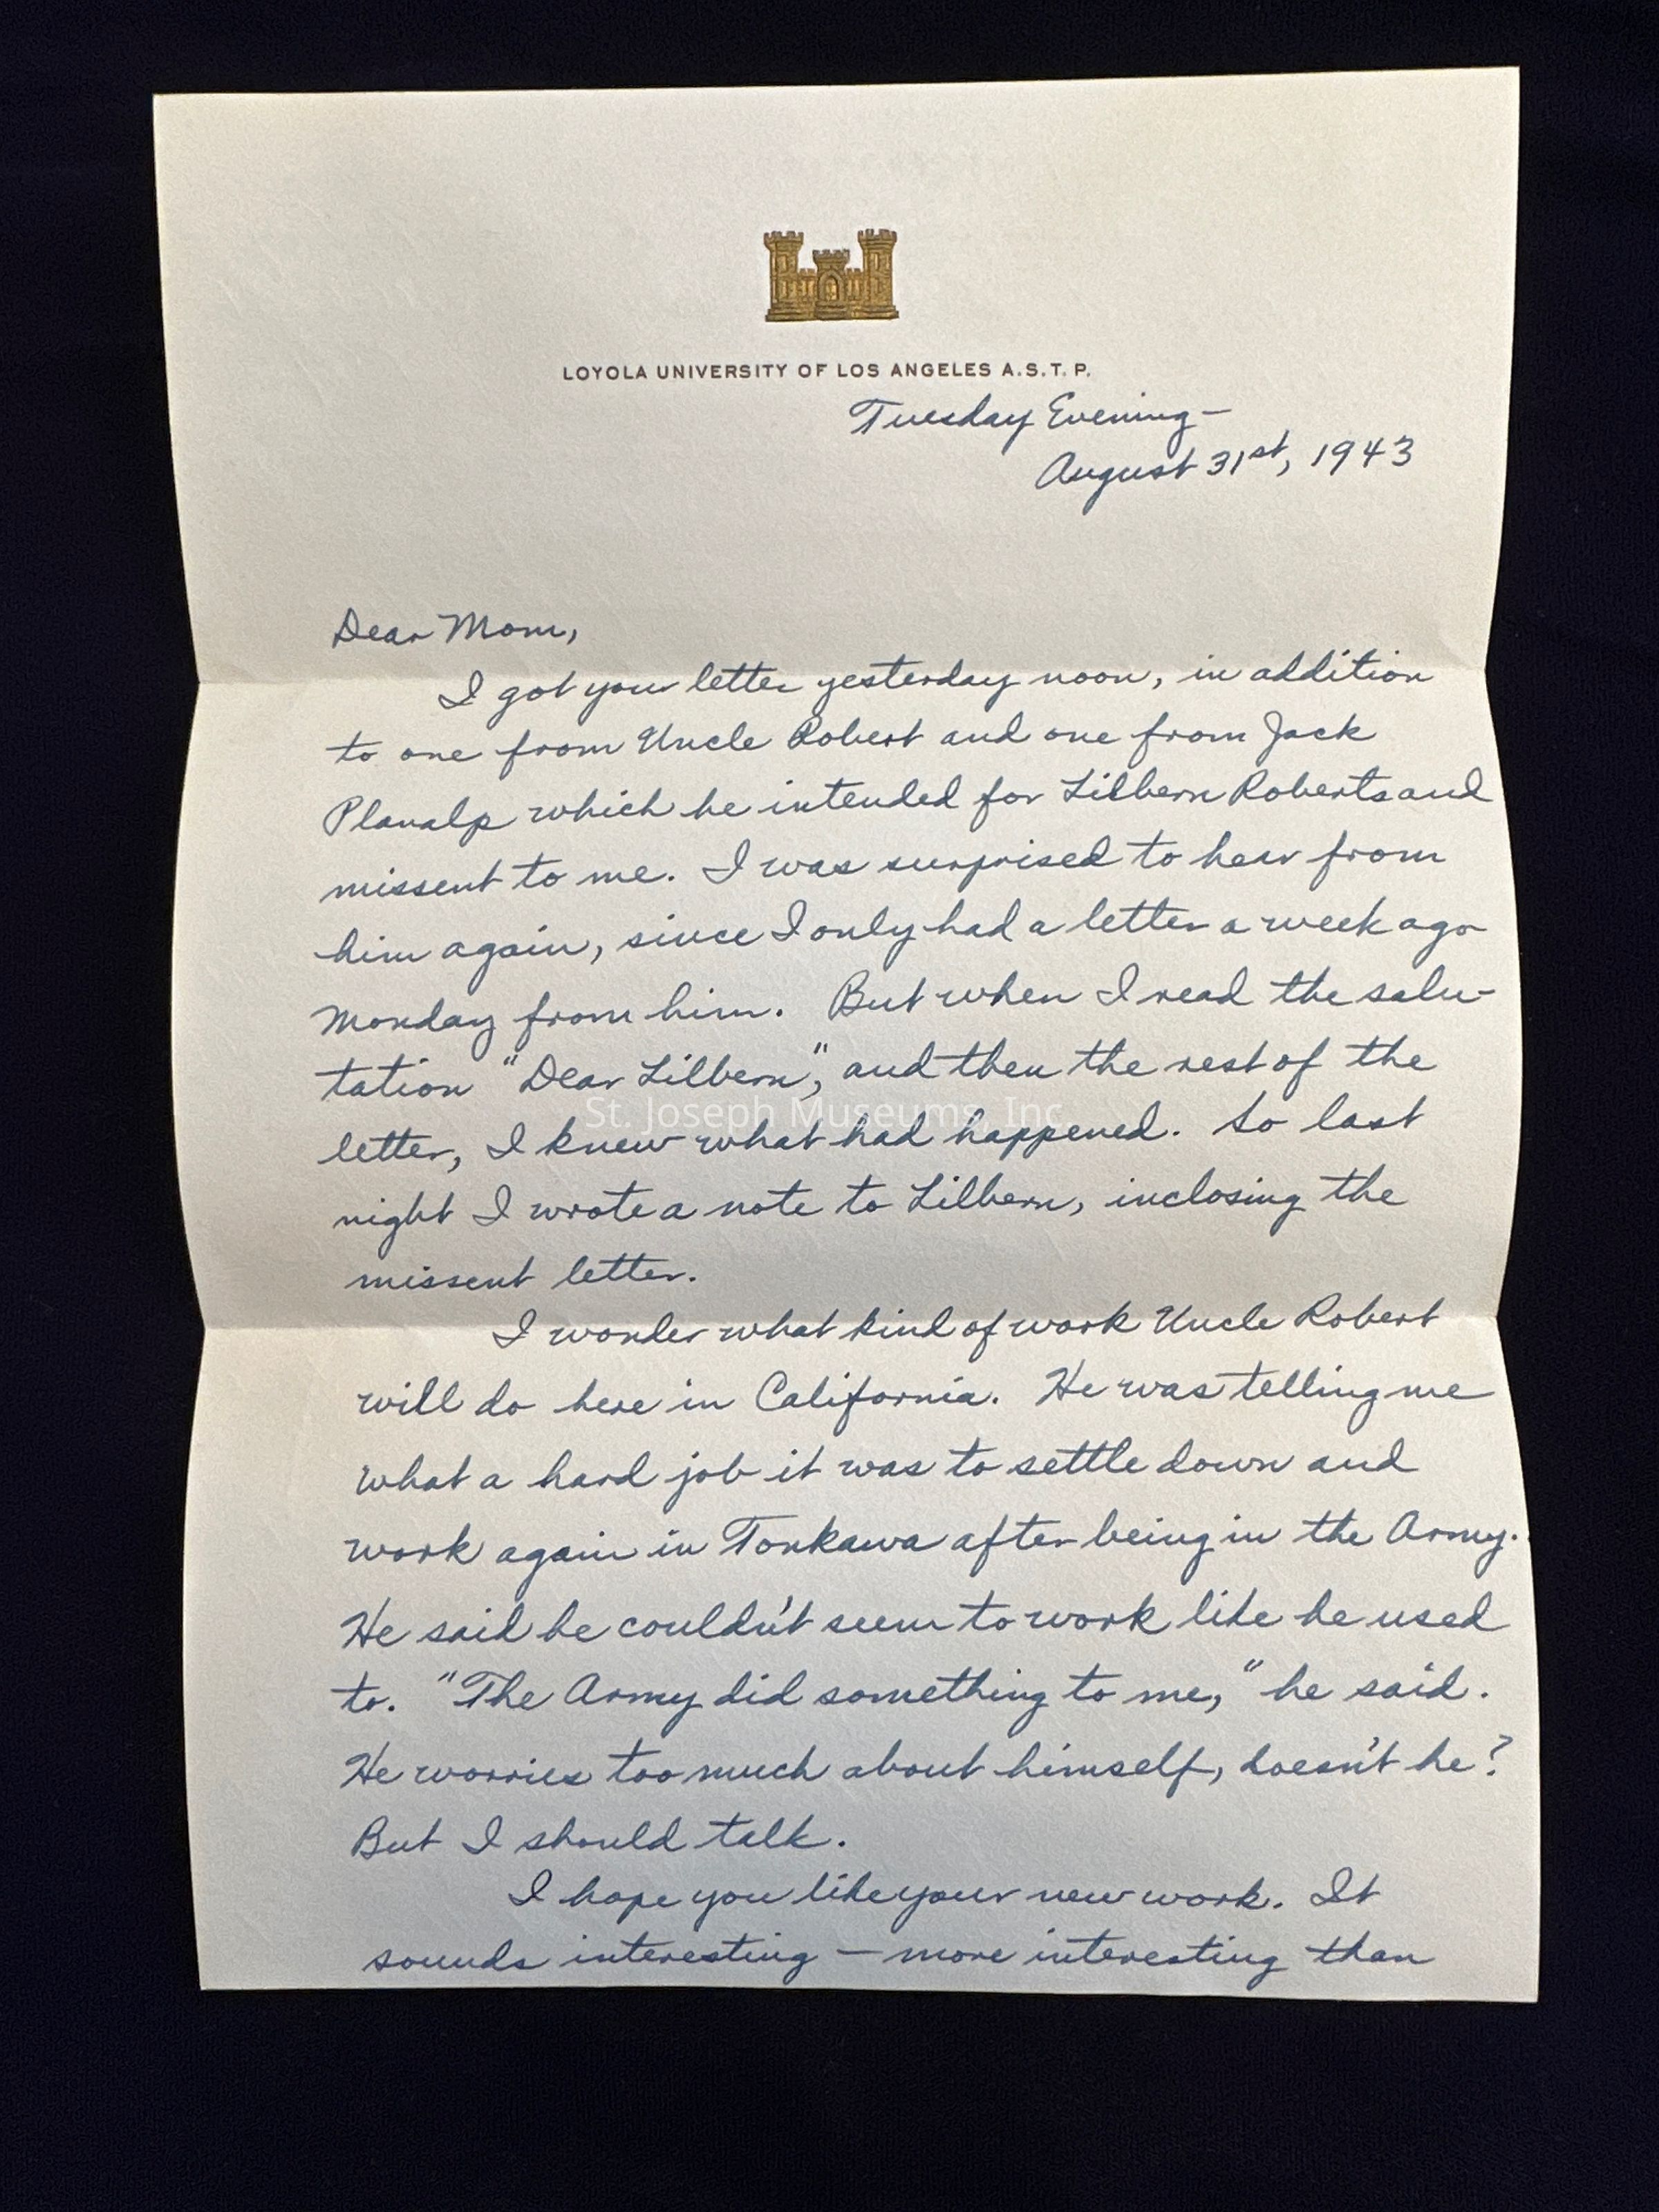 LOYOLA UNIVERSITY OF LOS ANGELES A.S.T.P.
Tuesday Evening—
August 31st, 1943
Dear Mom,
I got your letter yesterday noon, in addition
to one from Uncle Robert and one from Jack
Planalp which he intended for Lilbern Roberts and
missent to me. I was surprised to hear from
him again, since I only had a letter a week ago
Monday from him. But when I read the salu-
tation "Dear Lilbern," and then the rest of the
St. Joseph Museums, Inc
letter, I knew what had happened. So last
night I wrote a note to Lilbern, inclosing the
missent letter.
I wonder what kind of work Uncle Robert
will do here in California. He was telling me
what a hard job it was to settle down and
work again in Tonkawa after being in the Army.
He said he couldn't seem to work like he used
to. "The Army did something to me," he said.
He worries too much about himself, doesn't he?
But I should talk.
I hope you like your new work. It
sounds interesting — more interesting than